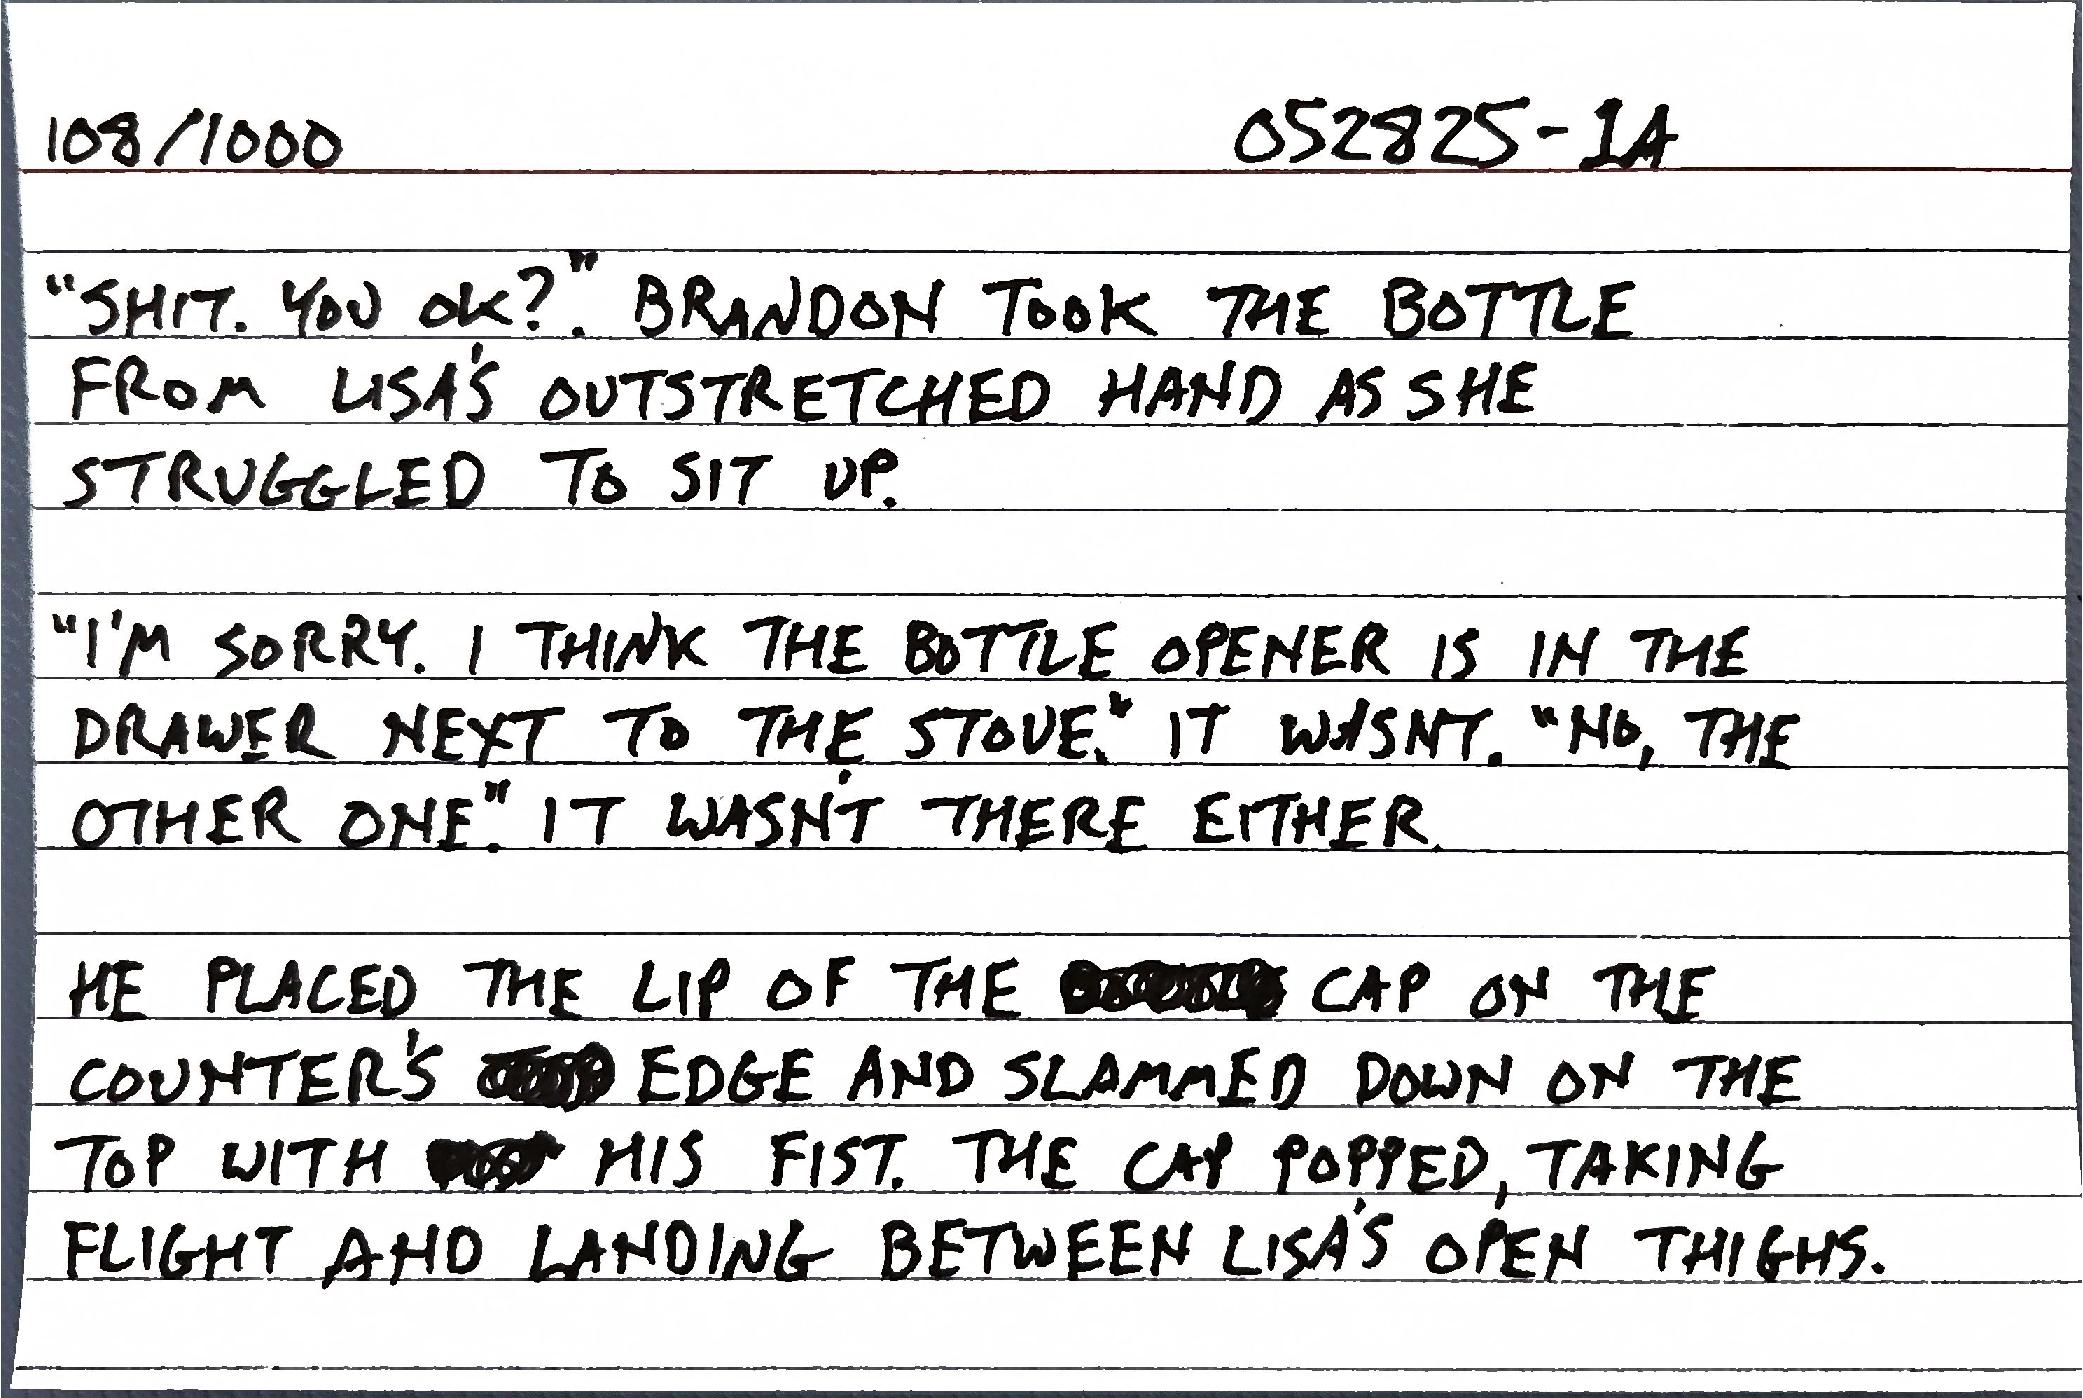 108/1000 052825-1A
"SHIT. YOU OK?". BRANDON TOOK THE BOTTLE
FROM LISA'S OUTSTRETCHED HAND AS SHE
STRUGGLED TO SIT UP.
"I'M SORRY. I THINK THE BOTTLE OPENER IS IN THE
DRAWER NEXT TO THE STOVE." IT WASNT. "NO, THE
OTHER ONE". IT WASN'T THERE EITHER.
HE PLACED THE LIP OF THE CAP ON THE
COUNTER'S EDGE AND SLAMMED DOWN ON THE
TOP WITH HIS FIST. THE CAP POPPED, TAKING
FLIGHT AND LANDING BETWEEN LISA'S OPEN THIGHS.